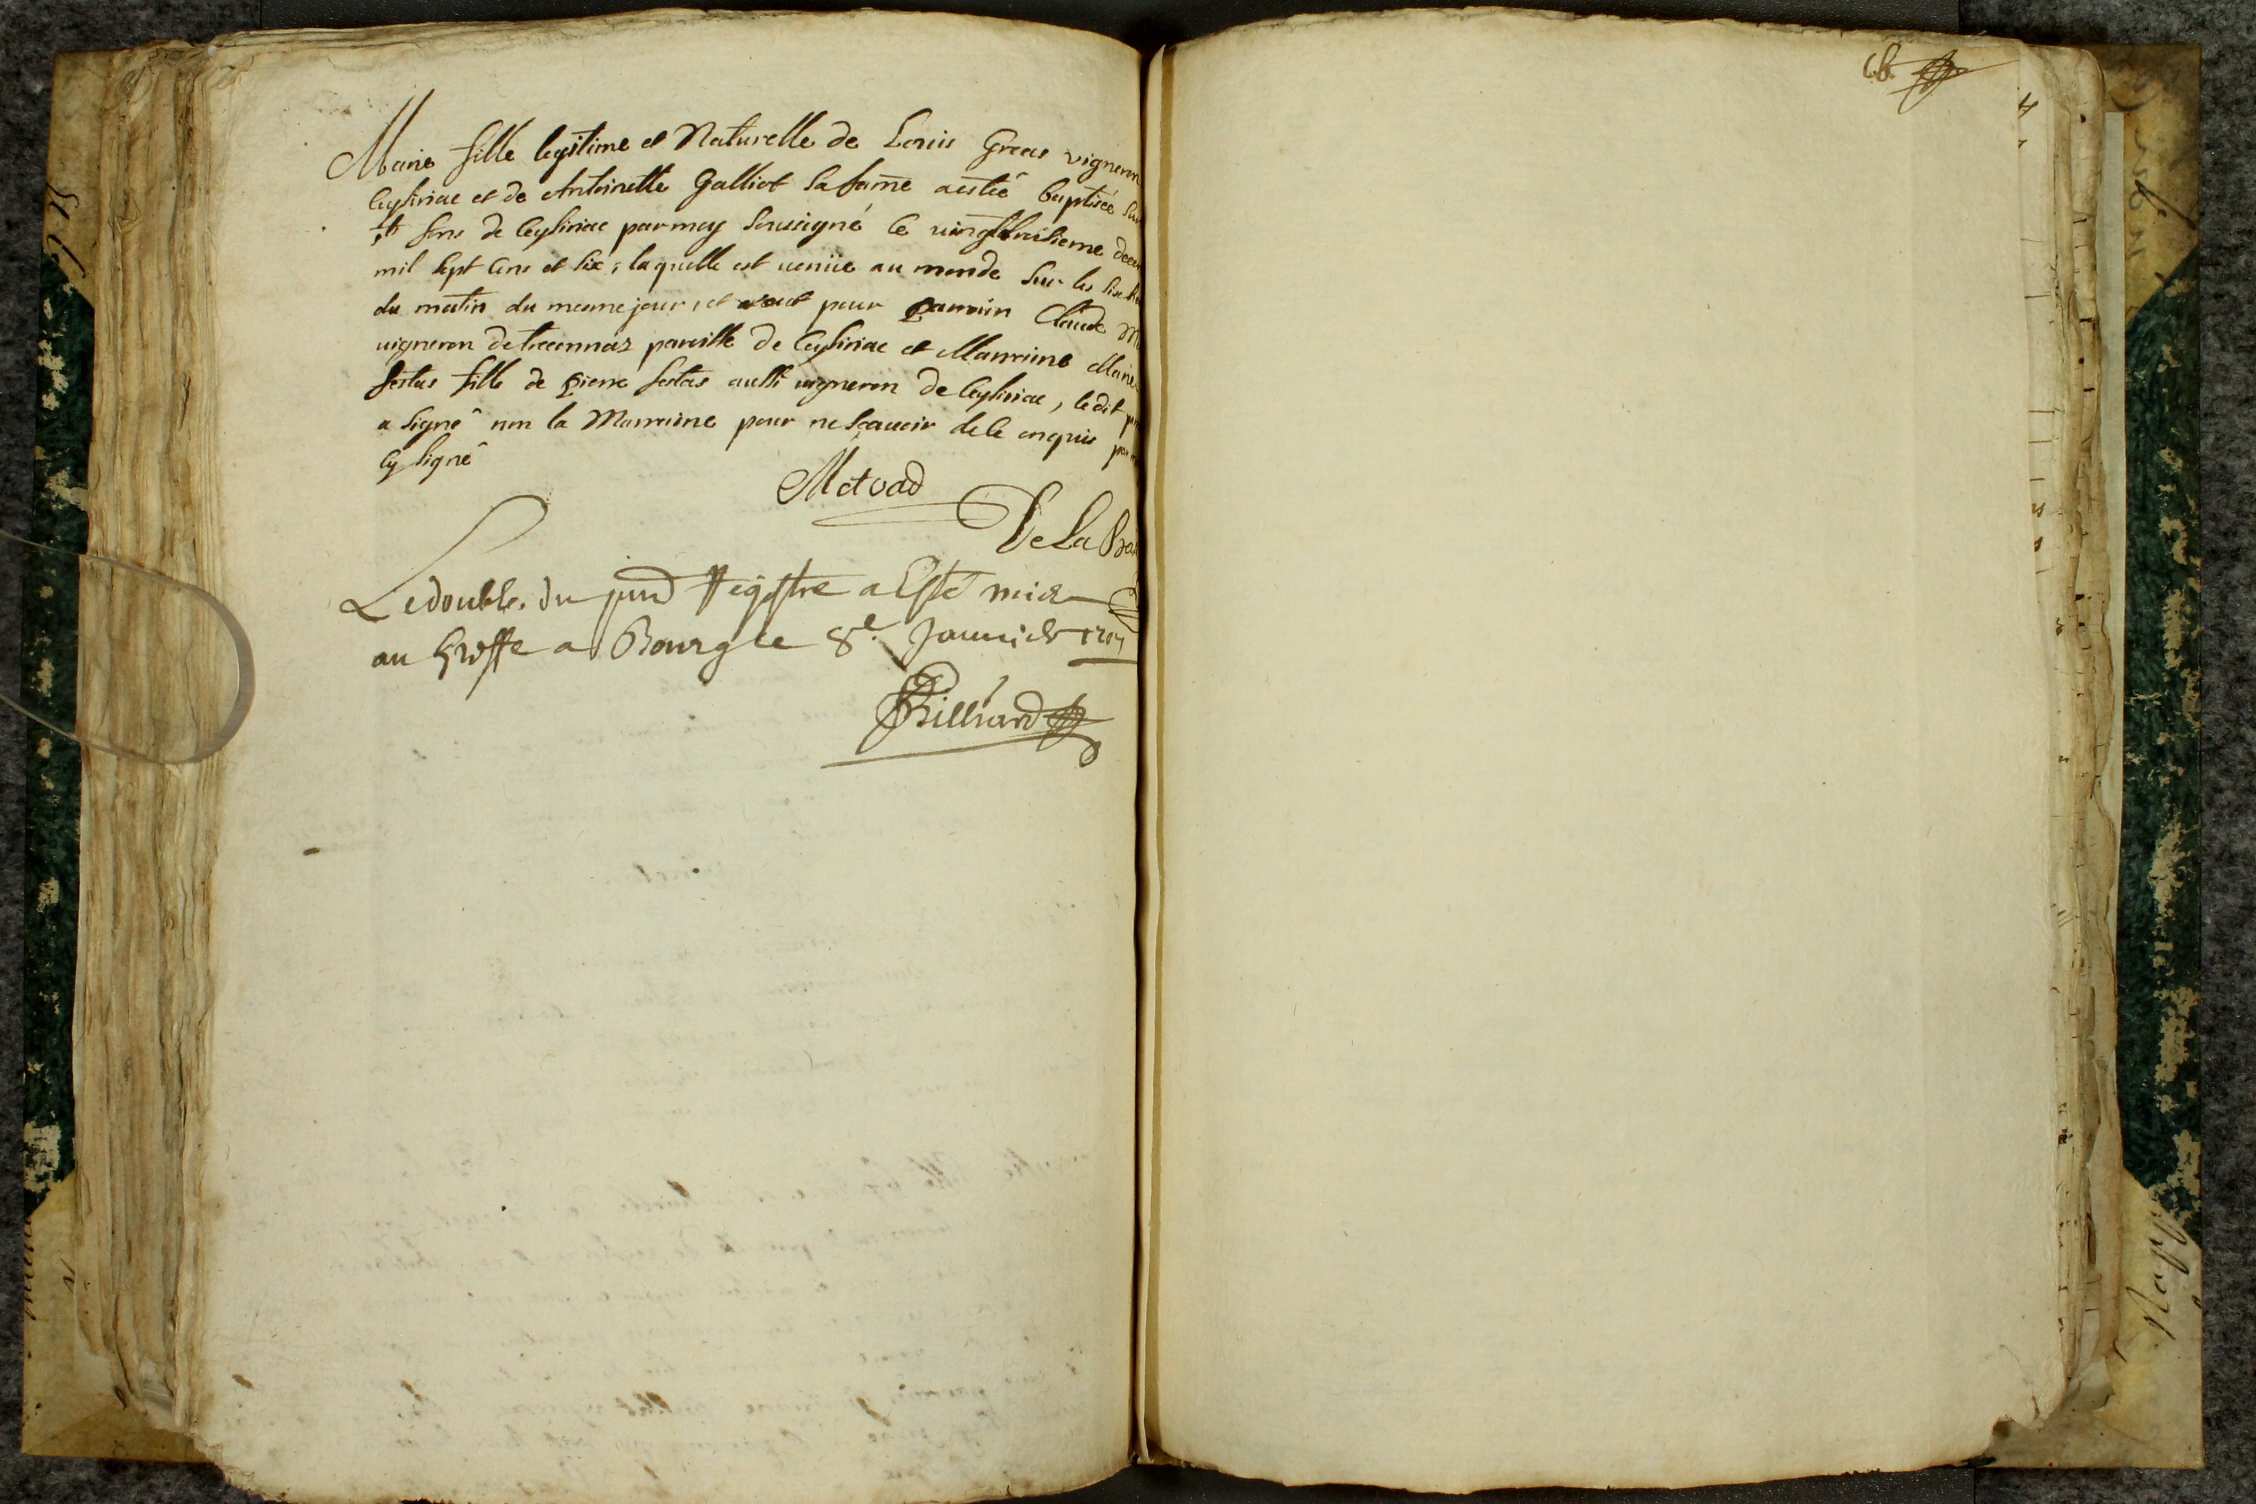 Marie fille legitime et Naturelle de Louis Greas vigneron
Ceysiriac et de Antoinette Galliot sa fame a estée baptisée
fons de Ceysiriac par moy sousigné le vingthuitieme
mil sept cens et six, laquelle est venüe au monde sur les six
du matin du mesme jour, et a eut pour parrain Claude
vigneron de treconnaz paroisse de Ceysiriac et Marraine Marie
festas fille de pierre festas aussi vigneron de Ceysiriac, le dit
a signé non la Marraine pour ne sçauoir de ce enquis
cy signé
Metvad
De La
Le double du pnt Registre a Esté mis
au Greffe a Bourg le 8e. Januier 1707
Billiard